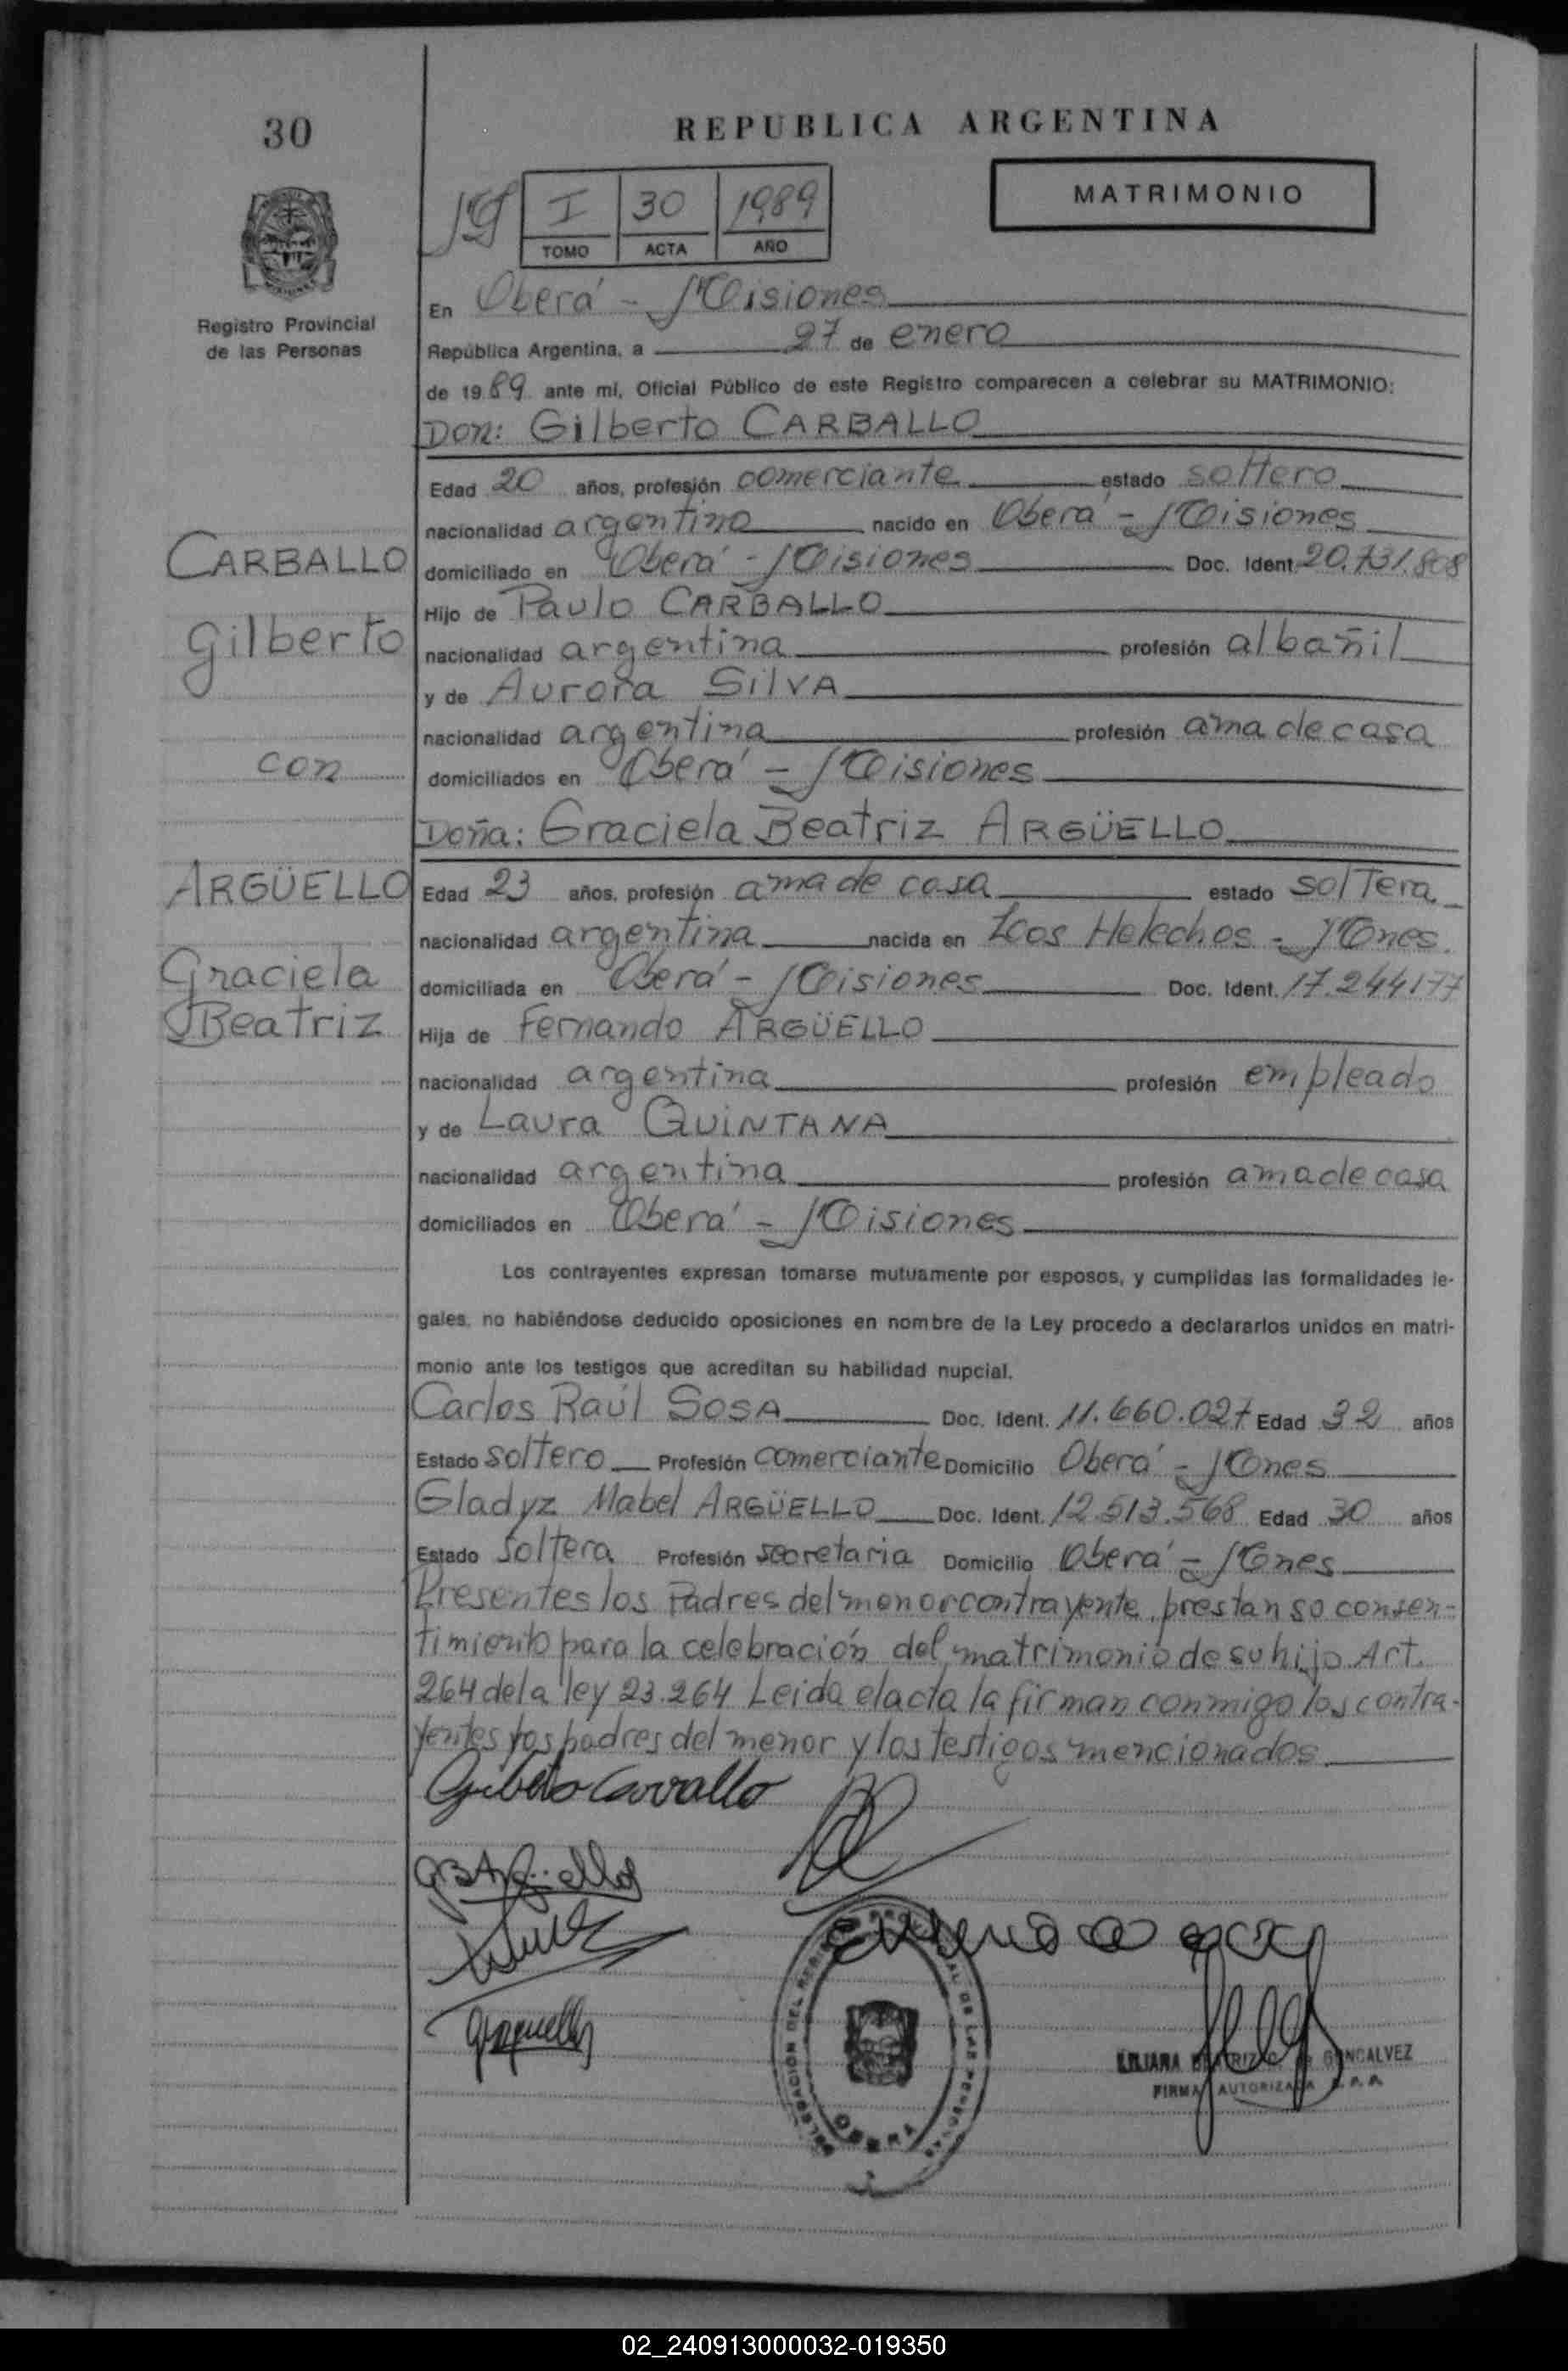 30
REPUBLICA ARGENTINA
MATRIMONIO
I 30 1989
TOMO ACTA AÑO
Registro Provincial
de las Personas
En Oberá - Misiones
República Argentina, a 27 de enero
de 1989 ante mí, Oficial Público de este Registro comparecen a celebrar su MATRIMONIO:
Don: Gilberto CARBALLO
Edad 20 años, profesión comerciante estado soltero
nacionalidad argentino nacido en Oberá - Misiones
CARBALLO
domiciliado en Oberá - Misiones Doc. Ident. 20.731.808
Hijo de Paulo CARBALLO
Gilberto
nacionalidad argentina profesión albañil
y de Aurora SilVA
nacionalidad argentina profesión ama de casa
con
domiciliados en Oberá - Misiones
Doña: Graciela Beatriz ARGÜELLO
ARGÜELLO
Edad 23 años, profesión ama de casa estado soltera
nacionalidad argentina nacida en Los Helechos - Mnes.
Graciela
domiciliada en Oberá - Misiones Doc. Ident. 17.244177
Beatriz
Hija de Fernando ARGÜELLO
nacionalidad argentina profesión empleado
y de Laura QUINTANA
nacionalidad argentina profesión ama de casa
domiciliados en Oberá - Misiones
Los contrayentes expresan tomarse mutuamente por esposos, y cumplidas las formalidades le-
gales, no habiéndose deducido oposiciones en nombre de la Ley procedo a declararlos unidos en matri-
monio ante los testigos que acreditan su habilidad nupcial.
Carlos Raúl SOSA Doc. Ident. 11.660.027 Edad 32 años
Estado soltero Profesión comerciante Domicilio Oberá - Mnes
Gladyz Mabel ARGÜELLO Doc. Ident. 12.513.568 Edad 30 años
Estado soltera Profesión secretaria Domicilio Oberá - Mnes
Presentes los Padres del menor contrayente, prestan so consen-
timiento para la celebración del matrimonio de su hijo Art.
264 de la ley 23.264 Leida el acta la firman conmigo los contra-
yentes los padres del menor y los testigos mencionados
Gilberto Carvallo
GBArgüello
DELEGACION DEL REGISTRO PROVINCIAL DE LAS PERSONAS
OBERA
LILIANA BEATRIZ GONCALVEZ
FIRMA AUTORIZADA
02_240913000032-019350